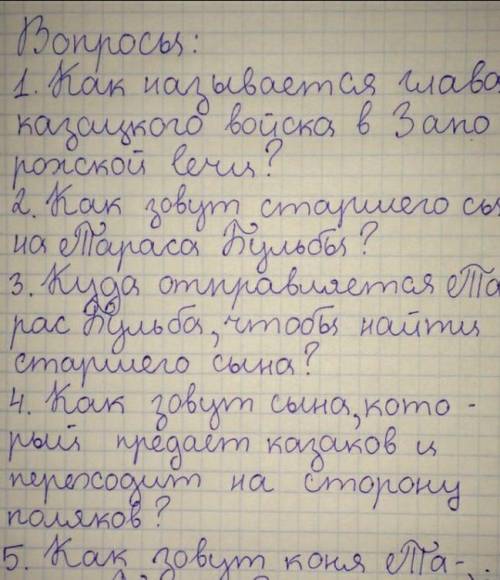 Вопросы:
1. Как называется глава
казацкого войска в Запо
рожской вечи?
2. Как зовут старшего сы
на Тараса Бульбы?
3. Куда отправляется Та
рас Бульба, чтобы найти
старшего сына?
4. Как зовут сына, кото -
рый предаёт казаков и
переходит на сторону
поляков?
5. Как зовут коня Та-